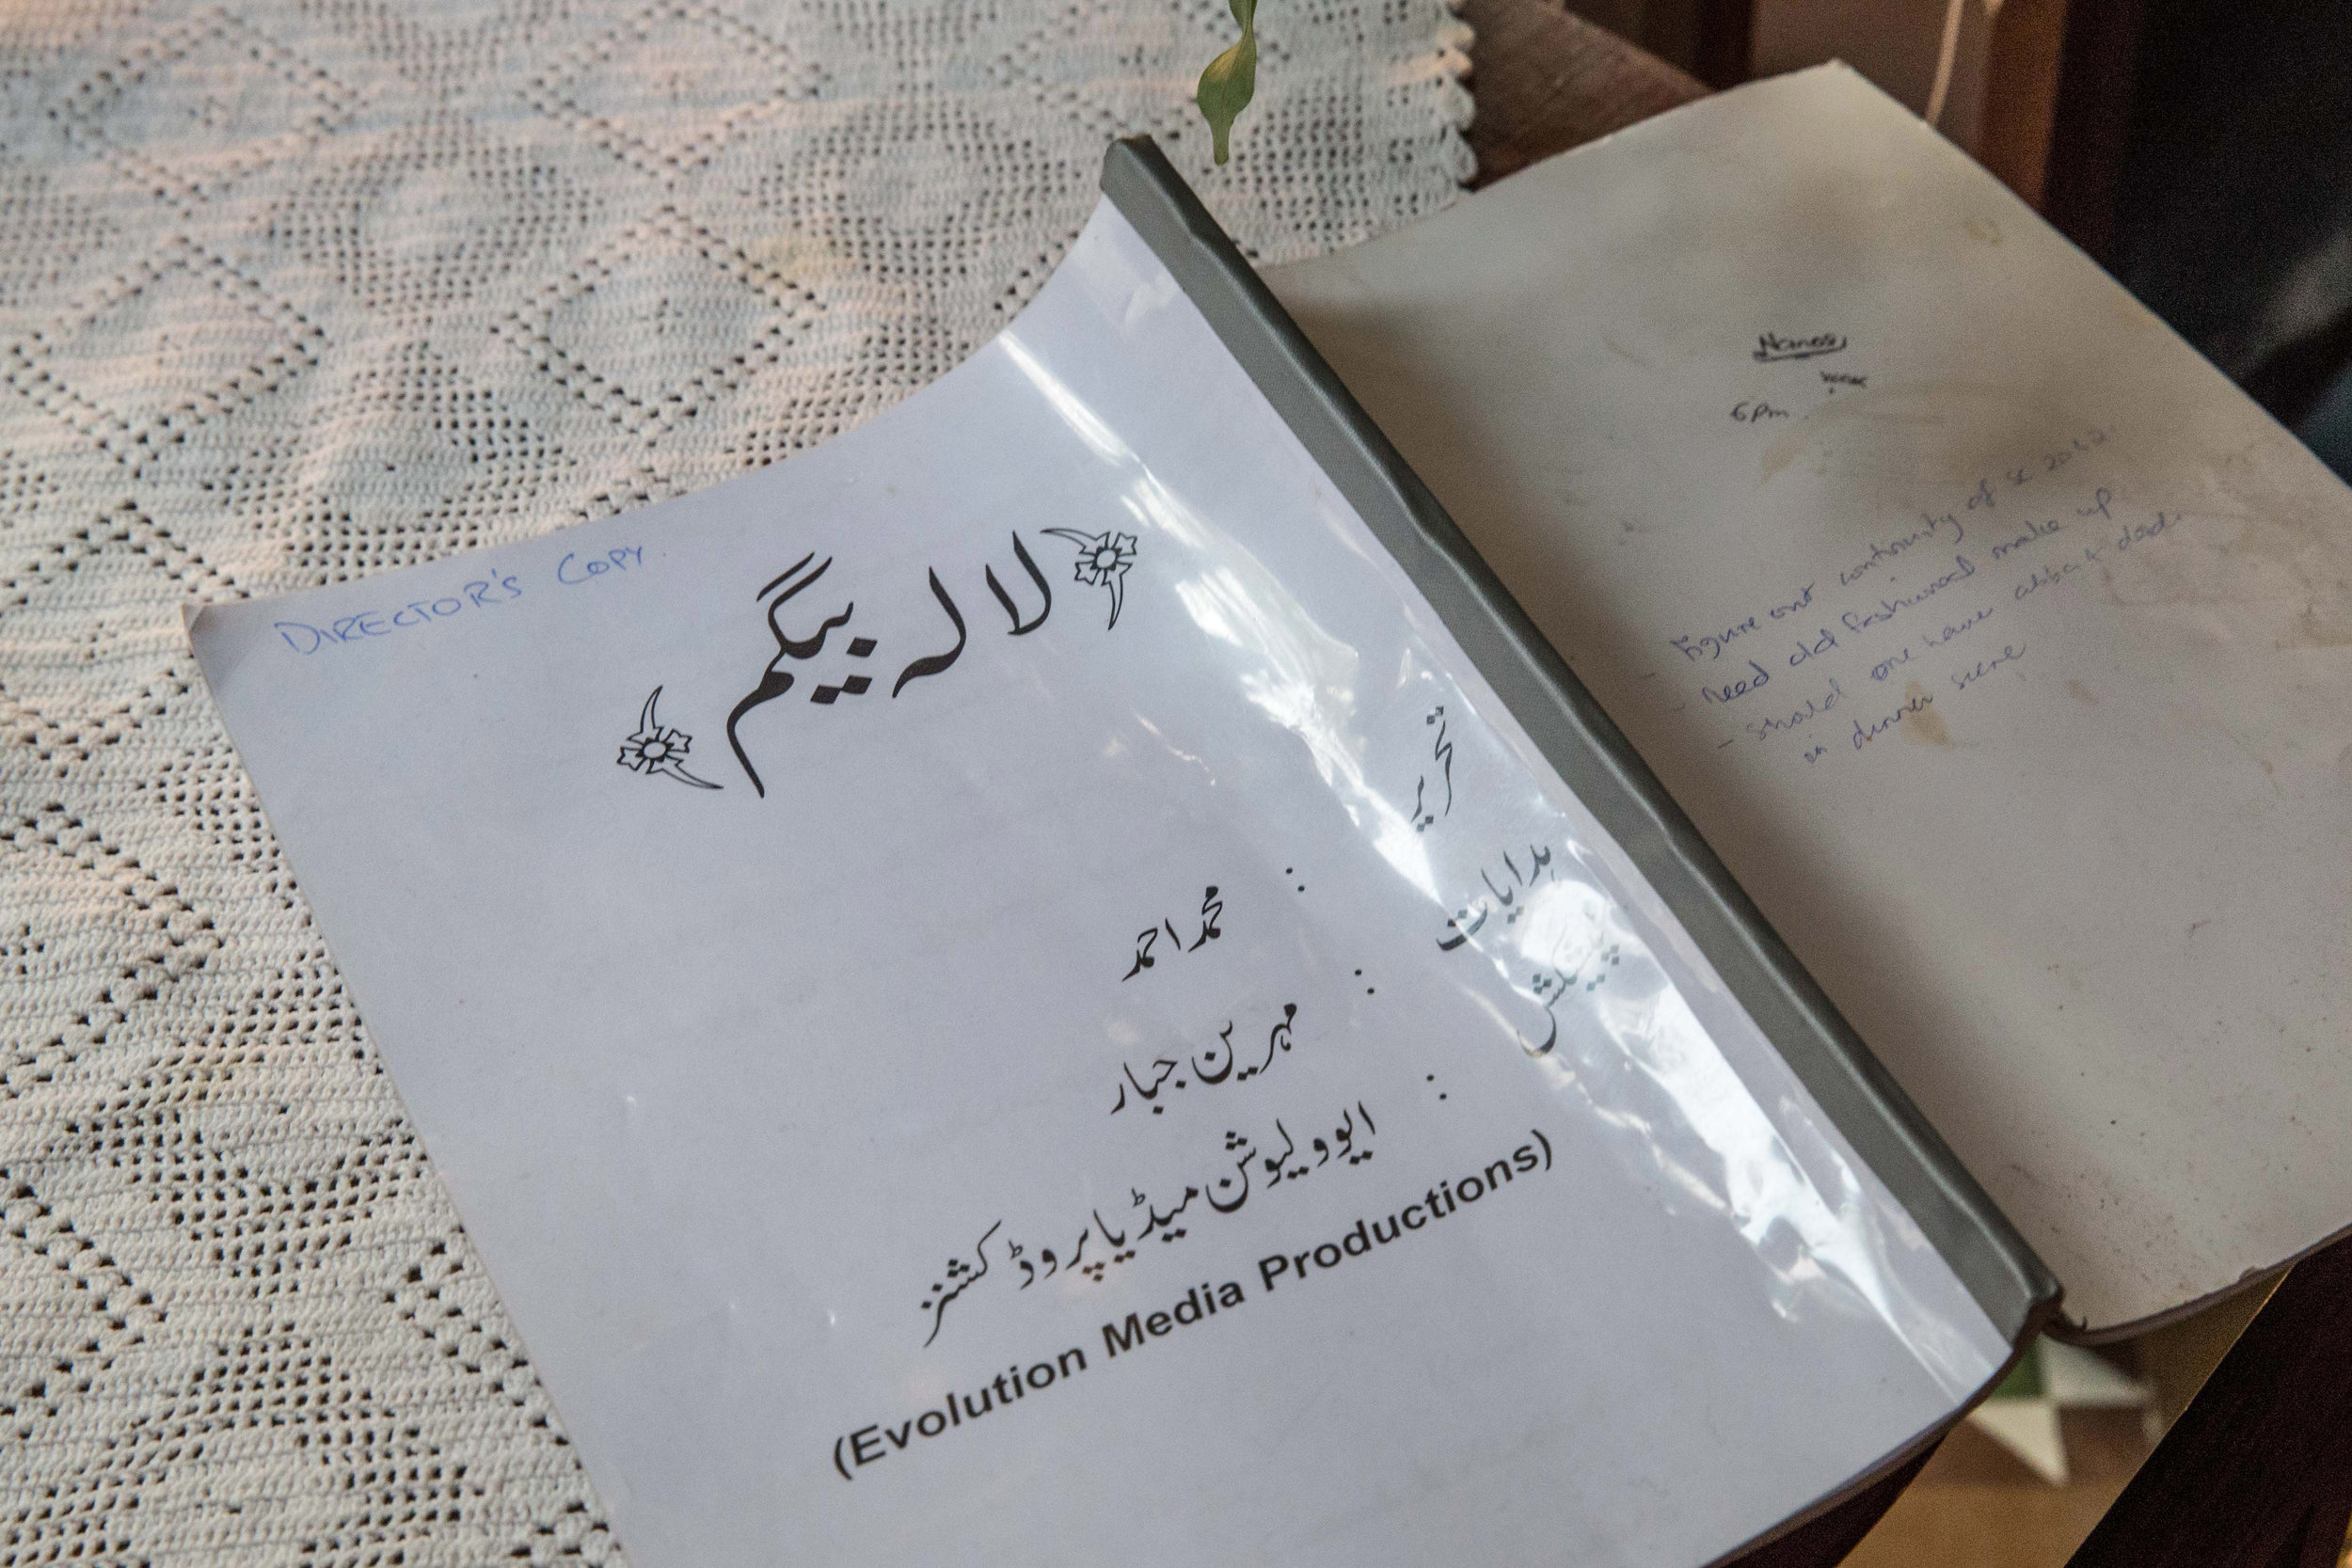 DIRECTOR'S COPY
لالہ بیگم
تحریر : محمد احمد
ہدایات : مہرین جبار
پیشکش : ایوولیوشن میڈیا پروڈکشنز
(Evolution Media Productions)
6pm
- Figure out continuity of sc 20 & 21
- Need old fashioned make up
- should one have abba &
in dinner scene